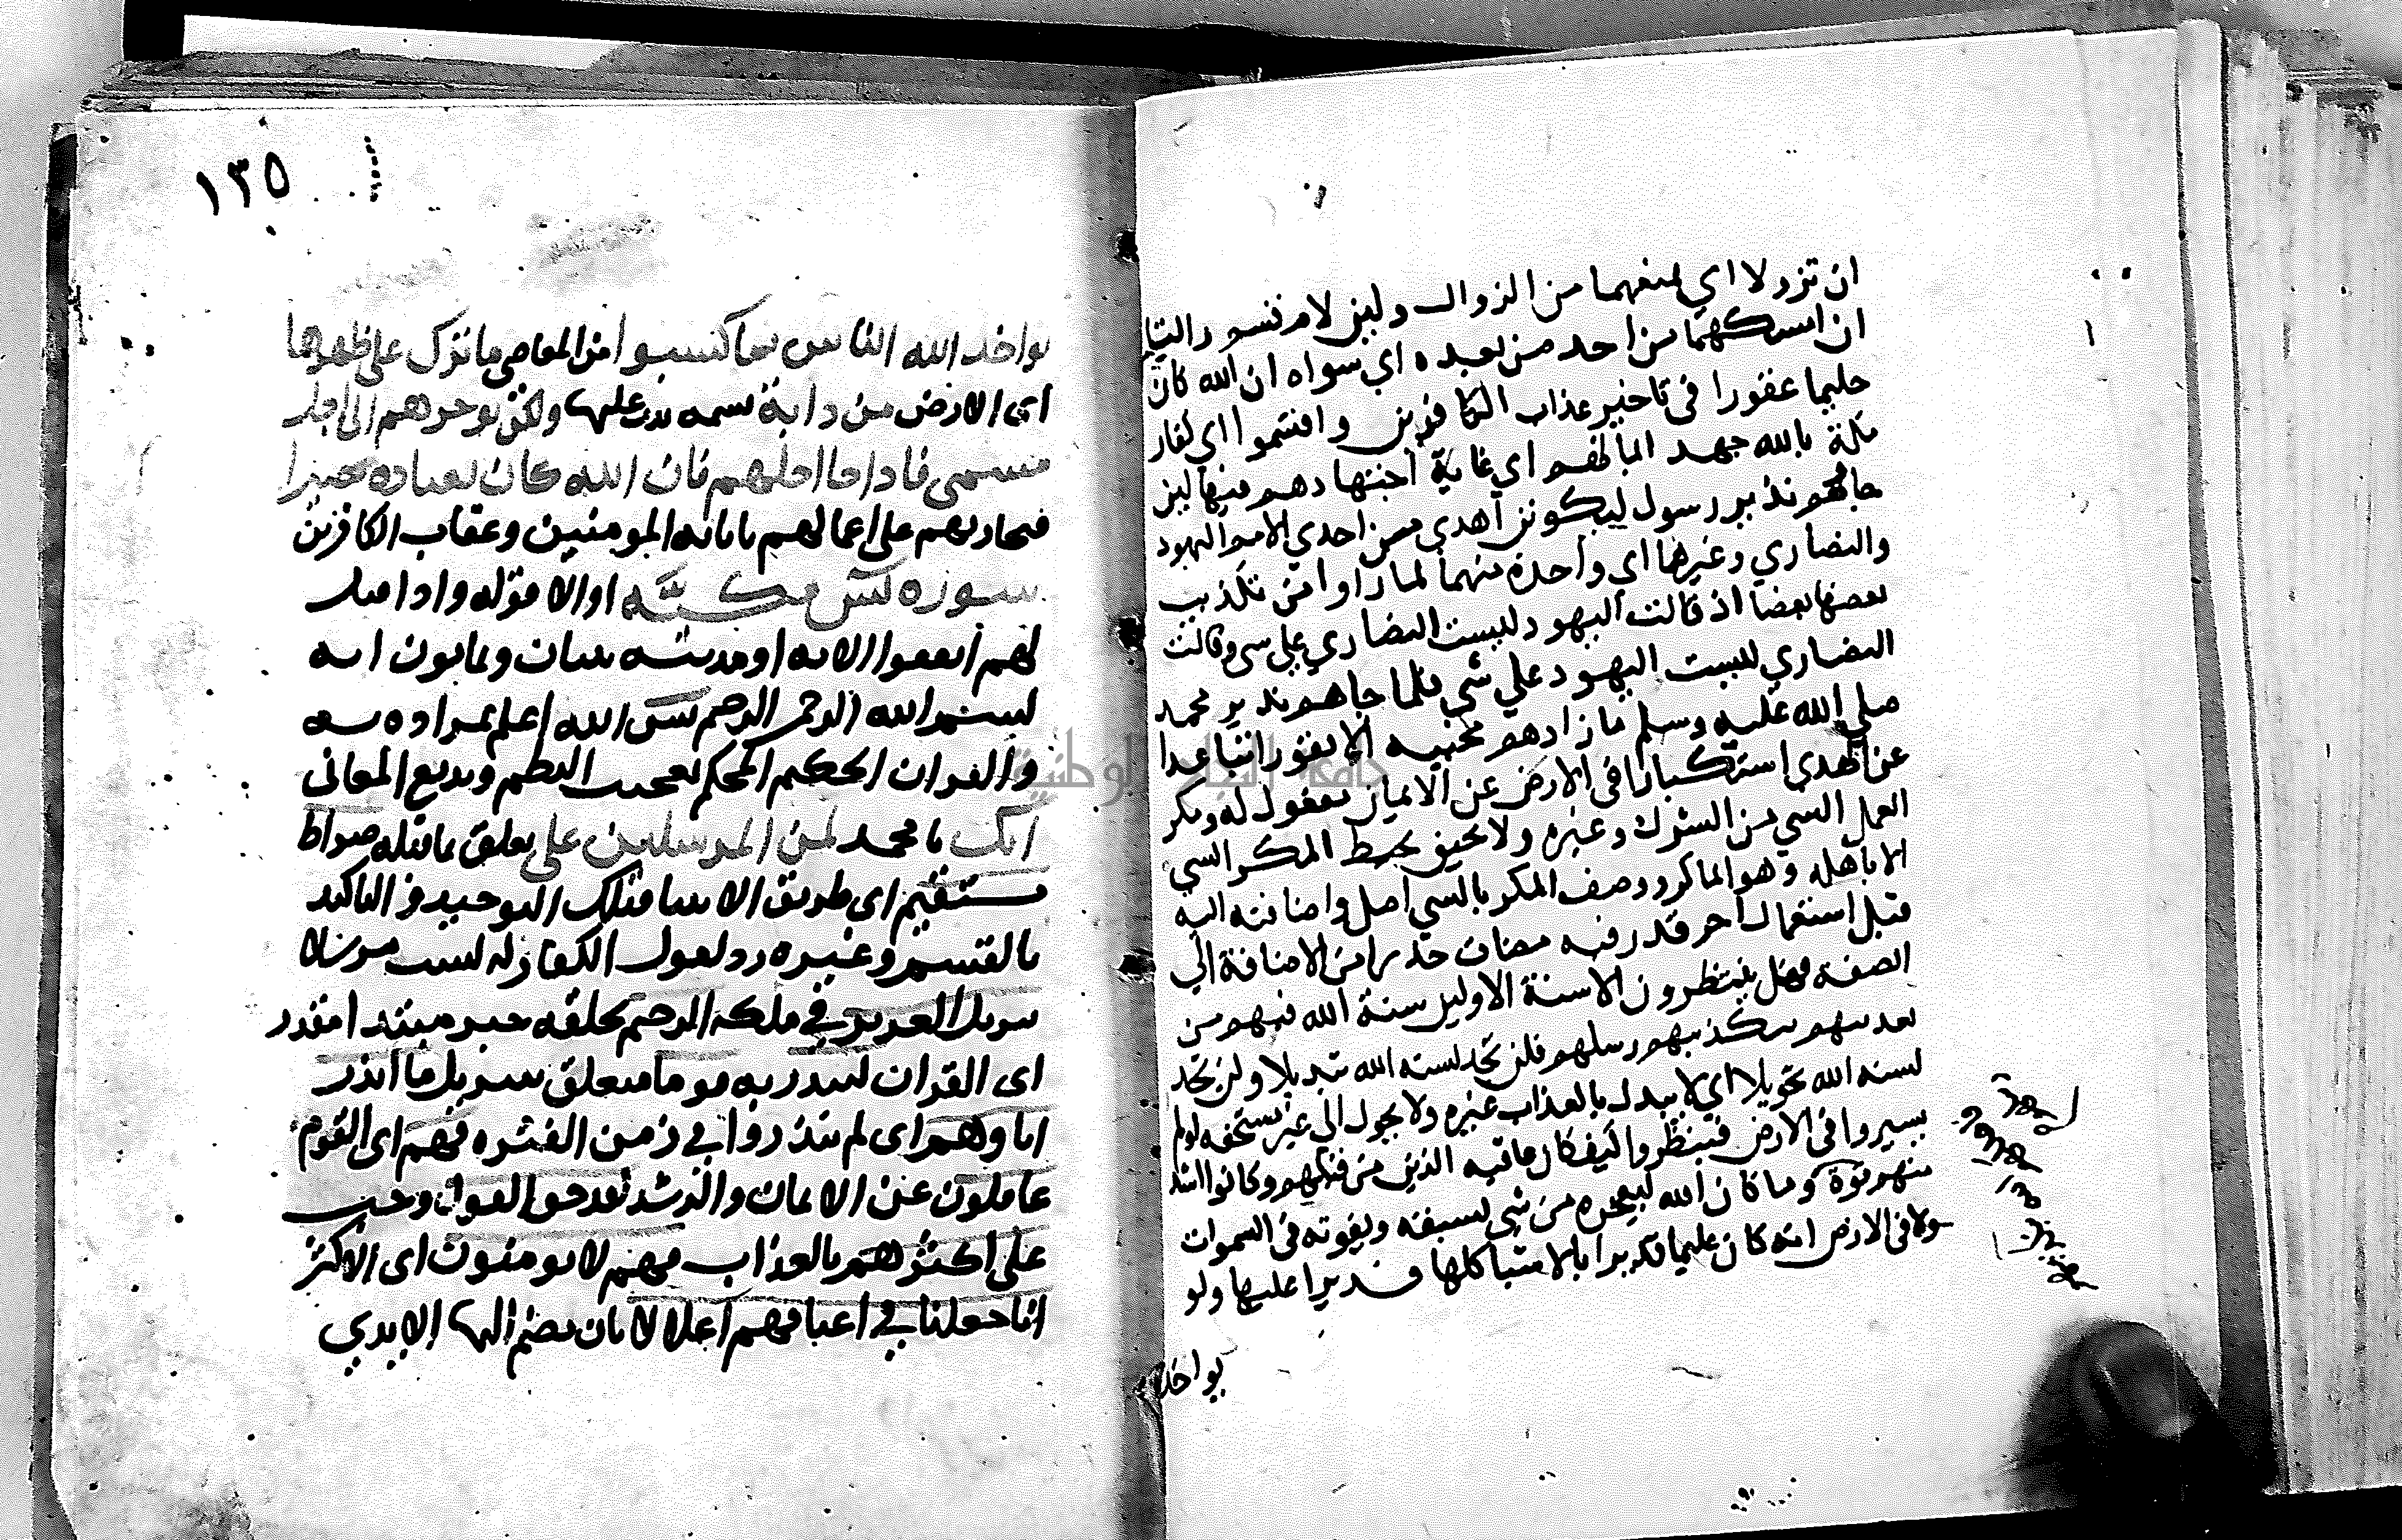 ان تزولا اي يمنعهما من الزوال ولين لام قسم زالتا
ان امسكهما من احد من بعده اي سواه ان الله كان
حليما غفورا في تاخير عذاب الكافرين واقسموا اي كفار
مكة بالله جهد ايمانهم اي غاية اجتهادهم فيها لين
جاهم نذير رسول ليكونن اهدي من احدي الامم اليهود
والنصاري وغيرهما اي واحدة منهما لما راوا من تكذيب
بعضها بعضا اذ قالت اليهود ليست النصاري علي شي وقالت
النصاري ليست اليهود علي شي فلما جاهم نذير محمد
صلي الله عليه وسلم ما زادهم مجييه الا نفورا تباعدا
عن الهدي استكبارا في الارض عن الايمان مفعول له ومكر
العمل السي من الشرك وغيره ولا يحيق يحيط المكر السي
الا باهله وهو الماكر ووصف المكر بالسي اصل واضافته اليه
قبل استعمال اخر قدر فيه مضاف حذرا من الاضافة الي
الصفة فهل ينتظرون الا سنة الاولين سنة الله فيهم من
تعذيبهم بتكذيبهم رسلهم فلن تجد لسنه الله تبديلا ولن تجد
لسنه الله تحويلا اي لا يبدل بالعذاب غيره ولا يحول الي غير مستحقه اولم
يسيروا في الارض فينظروا كيف كان عاقبه الذين من قبلهم وكانوا اشد
منهم قوة وما كان الله ليعجزه من شي يسبقه ويفوته في السموات
ولا في الارض انه كان عليما قديرا بالاشيا كلها قديرا عليها ولو
يواخذ
١٣٥
يواخذ الله الناس بما كسبوا من المعاصي ما ترك على ظهرها
اي الارض من دابة نسمه تدب عليها ولكن يوخرهم الى اجل
مسمى فاذا جا اجلهم فان الله كان بعباده بصيرا
فيجازيهم على اعمالهم باثابه المومنين وعقاب الكافرين
سورة يس مكيه او الا قوله واذا قيل
لهم انفقوا الايه او مدنيه ثنتان وثمانون ايه
بسم الله الرحمن الرحيم يس الله اعلم بمراده به
والقران الحكيم المحكم بعجيب النظم وبديع المعانى
انك يا محمد لمن المرسلين على متعلق بما قبله صراط
مستقيم اي طريق الانبيا قبلك التوحيد والتاكيد
بالقسم وغيره رد لقول الكفار له لست مرسلا
تنزيل العزيز في ملكه الرحيم بخلقه خبر مبتدا مقدر
اى القران لتنذر به قوما متعلق بتنزيل ما انذر
اباوهم اى لم ينذروا في زمن الفتره فهم اى القوم
غافلون عن الايمان والرشد لقد حق القول وجب
على اكثرهم بالعذاب فهم لا يومنون اى الاكثر
انا جعلنا في اعناقهم اغلالا بان تضم اليها الايدي